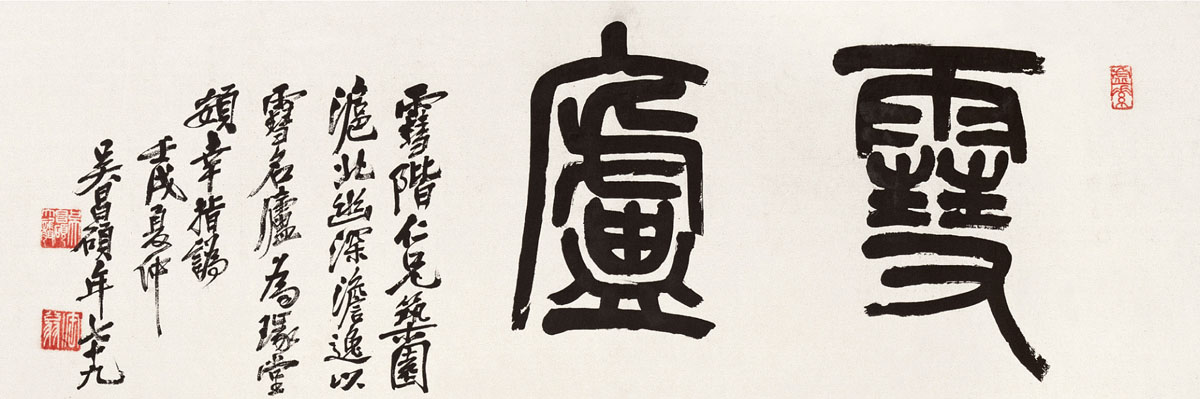 雪廬
雪階仁兄築園
滬北幽深澹逸以
雪名廬為瑑堂
額幸指譌
壬戌夏仲
吳昌碩年七十九